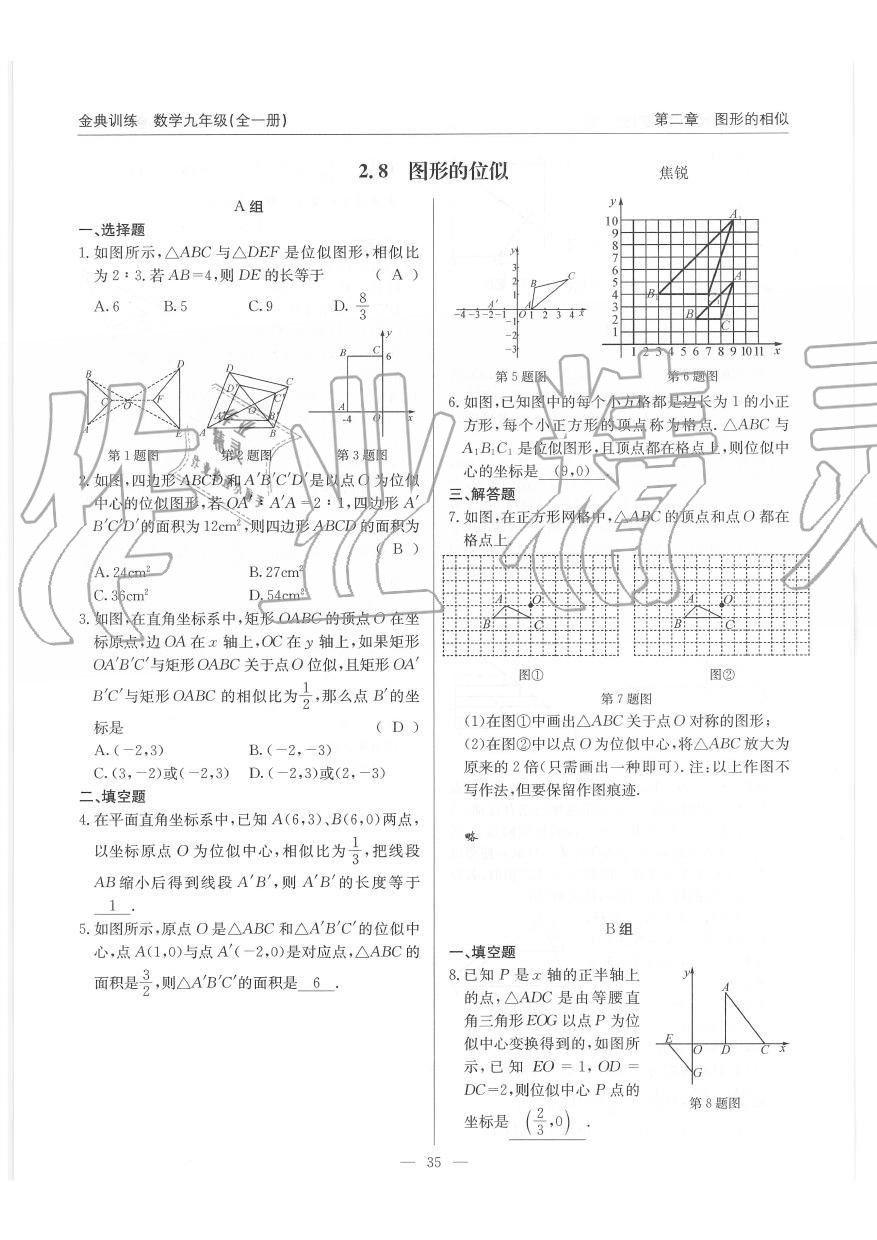 金典训练　数学九年级(全一册)
第二章　图形的相似
2.8　图形的位似
焦锐
A组
一、选择题
1. 如图所示,△ABC 与△DEF 是位似图形,相似比
为 2∶3.若 AB=4,则 DE 的长等于 ( A )
A. 6　B. 5　C. 9　D. 8/3
第 1 题图　第 2 题图　第 3 题图
2. 如图,四边形 ABCD 和 A′B′C′D′是以点 O 为位似
中心的位似图形,若 OA′∶A′A=2∶1,四边形 A′
B′C′D′的面积为 12cm²,则四边形 ABCD 的面积为
( B )
A. 24cm²　B. 27cm²
C. 36cm²　D. 54cm²
3. 如图,在直角坐标系中,矩形 OABC 的顶点 O 在坐
标原点,边 OA 在 x 轴上,OC 在 y 轴上,如果矩形
OA′B′C′与矩形 OABC 关于点 O 位似,且矩形 OA′
B′C′与矩形 OABC 的相似比为 1/2,那么点 B′的坐
标是 ( D )
A. (-2,3)　B. (-2,-3)
C. (3,-2)或(-2,3)　D. (-2,3)或(2,-3)
二、填空题
4. 在平面直角坐标系中,已知 A(6,3)、B(6,0)两点,
以坐标原点 O 为位似中心,相似比为 1/3,把线段
AB 缩小后得到线段 A′B′,则 A′B′的长度等于
1 .
5. 如图所示,原点 O 是△ABC 和△A′B′C′的位似中
心,点 A(1,0)与点 A′(-2,0)是对应点,△ABC 的
面积是 3/2,则△A′B′C′的面积是 6 .
第 5 题图　第 6 题图
6. 如图,已知图中的每个小方格都是边长为 1 的小正
方形,每个小正方形的顶点称为格点. △ABC 与
A₁B₁C₁ 是位似图形,且顶点都在格点上,则位似中
心的坐标是 (9,0)
三、解答题
7. 如图,在正方形网格中,△ABC 的顶点和点 O 都在
格点上.
图①　图②
第 7 题图
(1)在图①中画出△ABC 关于点 O 对称的图形;
(2)在图②中以点 O 为位似中心,将△ABC 放大为
原来的 2 倍(只需画出一种即可). 注:以上作图不
写作法,但要保留作图痕迹.
略
B组
一、填空题
8. 已知 P 是 x 轴的正半轴上
的点,△ADC 是由等腰直
角三角形 EOG 以点 P 为位
似中心变换得到的,如图所
示,已知 EO=1,OD=
DC=2,则位似中心 P 点的
坐标是 (2/3,0) .
第 8 题图
— 35 —
作业精灵